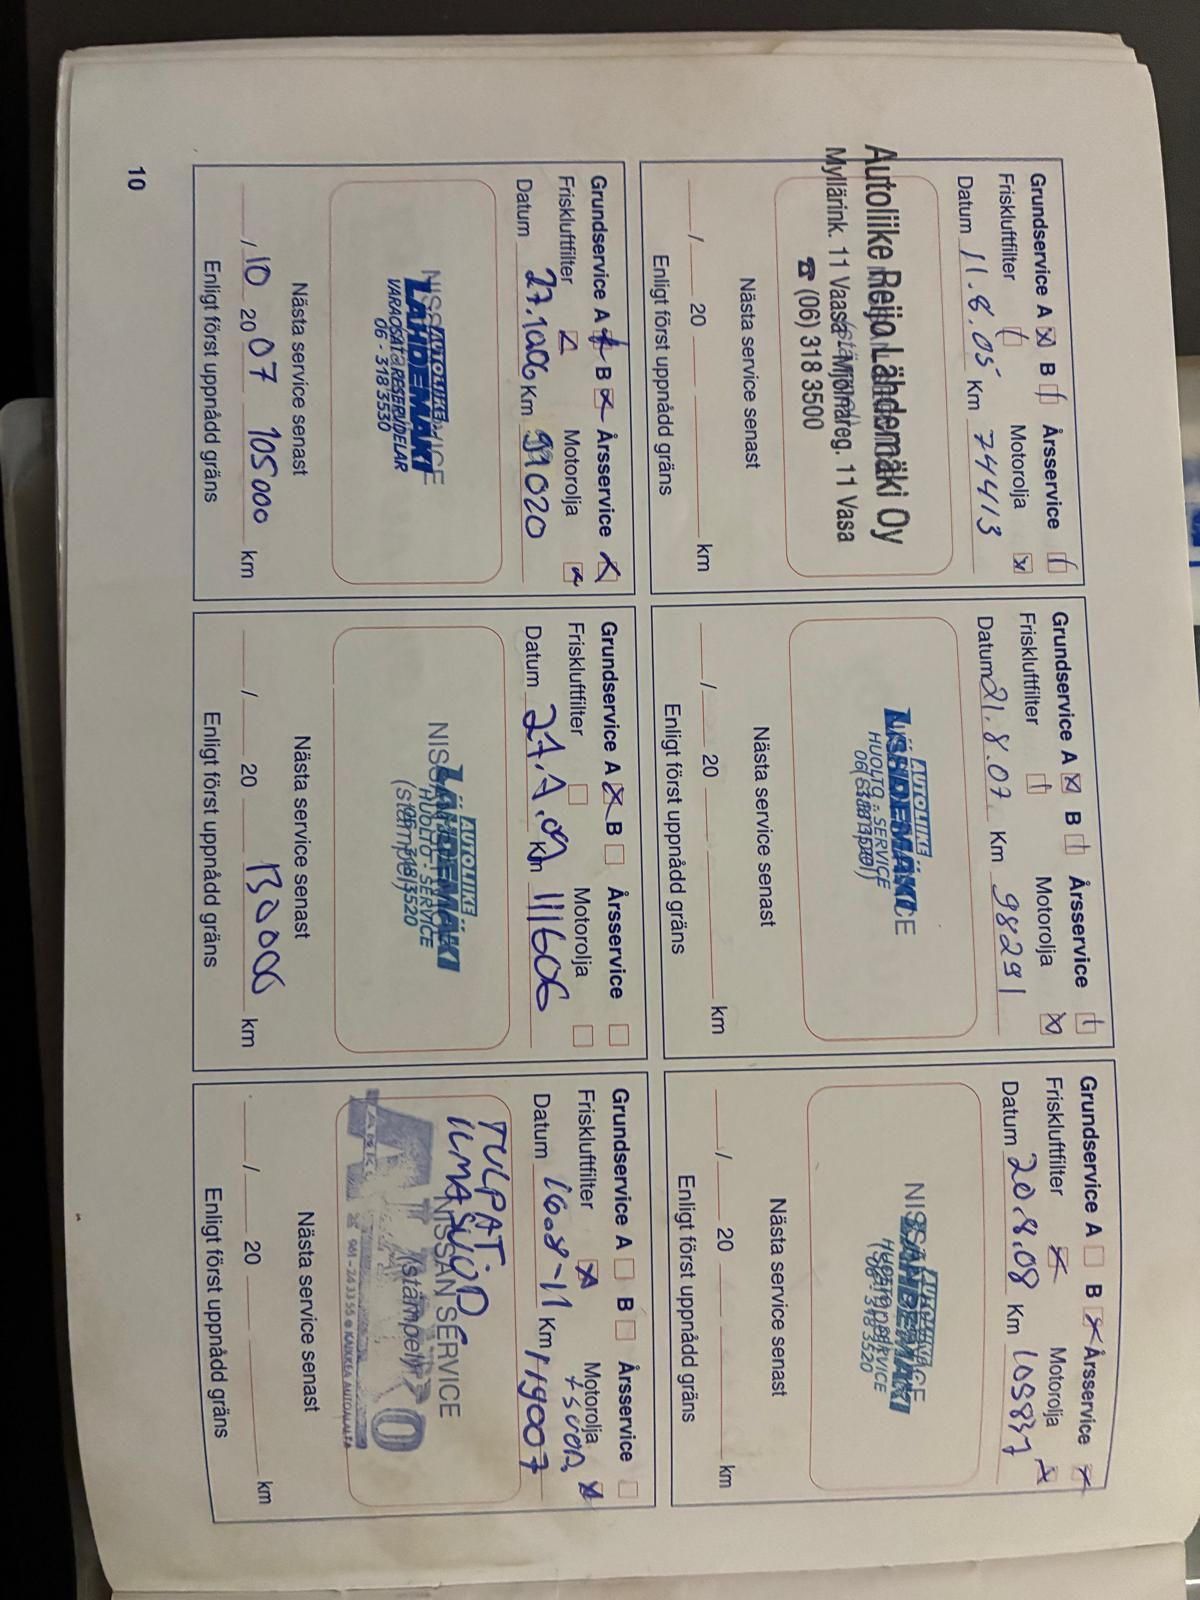 Grundservice A B Årsservice
Friskluftfilter Motorolja
Datum 11.8.05 Km 74413
Autoliike Reijo Lähdemäki Oy
Myllärink. 11 Vaasa - Mjölnareg. 11 Vasa
☎ (06) 318 3500
Nästa service senast
/ 20 km
Enligt först uppnådd gräns
Grundservice A B Årsservice
Friskluftfilter Motorolja
Datum 21.8.07 Km 98291
AUTOLIIKE
LÄHDEMÄKI
HUOLTO - SERVICE
Nästa service senast
/ 20 km
Enligt först uppnådd gräns
Grundservice A B Årsservice
Friskluftfilter Motorolja
Datum 20.8.08 Km 105837
NISSAN
318 3520
Nästa service senast
/ 20 km
Enligt först uppnådd gräns
Grundservice A B Årsservice
Friskluftfilter Motorolja
Datum 27.1006 Km 91020
AUTOLIIKE
LÄHDEMÄKI
VARAOSAT RESERVDELAR
06 - 318 3530
Nästa service senast
/ 10 20 07 105000 km
Enligt först uppnådd gräns
Grundservice A B Årsservice
Friskluftfilter Motorolja
Datum 27.1.09 Km 111606
AUTOLIIKE
LÄHDEMÄKI
HUOLTO - SERVICE
(stämpel)
Nästa service senast
/ 20 130000 km
Enligt först uppnådd gräns
Grundservice A B Årsservice
Friskluftfilter Motorolja
Datum 16.8-11 Km 119007
TULPAT
NISSAN SERVICE
(stämpel)
Nästa service senast
/ 20 km
Enligt först uppnådd gräns
10